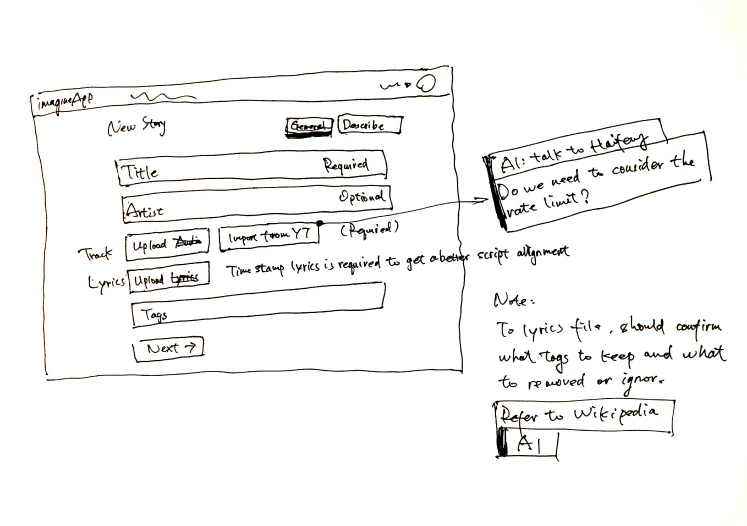 imagineApp
New Story
General Describe
Title Required
Artist Optional
Track Upload Audio Import from YT (Required)
Lyrics Upload Lyrics Time stamp lyrics is required to get a better script alignment
Tags
Next →
AI: talk to Haifeng
Do we need to consider the
rate limit?
Note:
To lyrics file, should confirm
what Tags to keep and what
to removed or ignor.
Refer to Wikipedia
AI